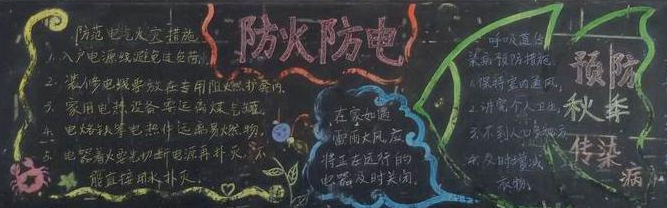 防范电气火灾措施
1. 入户电源线避免过负荷
2. 装修电线要放在专用阻燃护套内
3. 家用电热设备要远离煤气罐
4. 电烙铁等电热件远离易燃物
5. 电器着火要先切断电源再扑灭，不
能直接用水扑灭。
防火防电
在家如遇
雷雨大风，应
将正在运行的
电器及时关闭。
呼吸道传
染病预防措施
1. 保持室内通风
2. 讲究个人卫生
3. 不到人口
4. 及时增减
衣物。
预防
秋季
传染
病